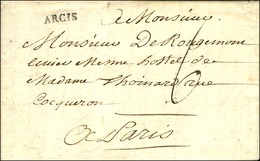 ARCIS
A Monsieur
Monsieur De Rougemont
Madame Thoinard rue
Cocqueron
A Paris